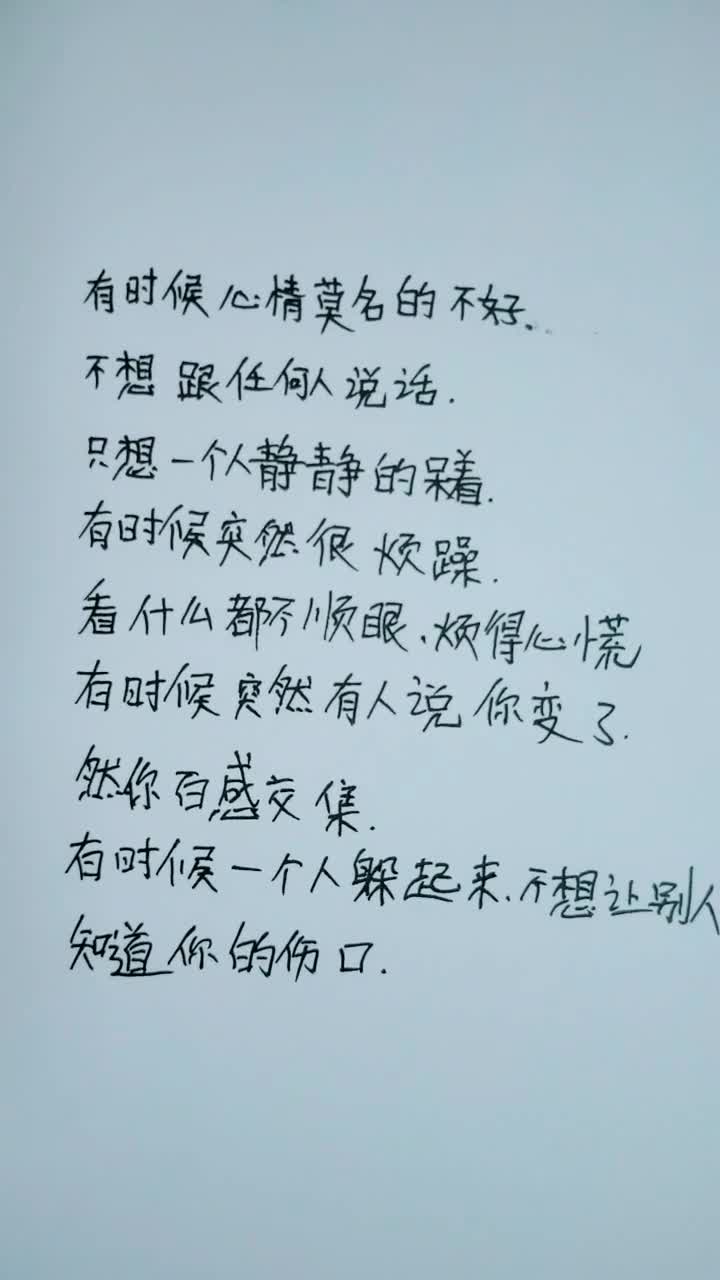 有时候心情莫名的不好.
不想跟任何人说话.
只想一个人静静的呆着.
有时候突然很烦躁.
看什么都不顺眼.烦得心慌
有时候突然有人说你变了.
然你百感交集.
有时候一个人躲起来.不想让别人
知道你的伤口.